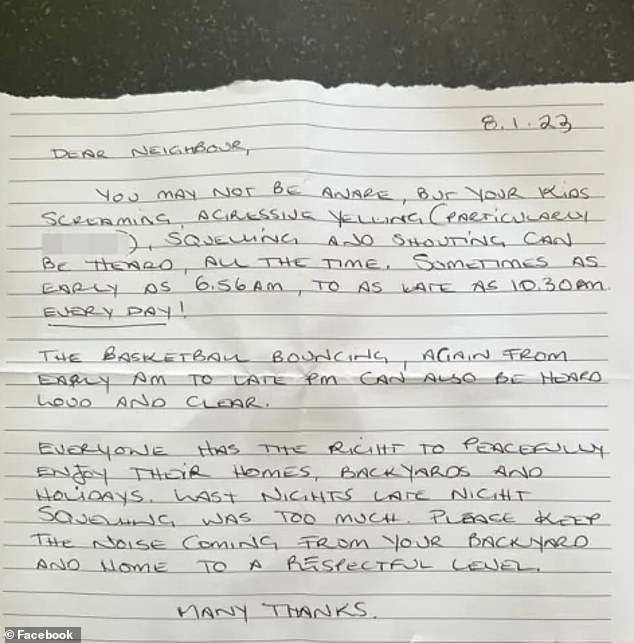 8.1.23
DEAR NEIGHBOUR,
YOU MAY NOT BE AWARE, BUT YOUR KIDS
SCREAMING, AGRESSIVE YELLING (PARTICULARLY
), SQUELLING AND SHOUTING CAN
BE HEARD, ALL THE TIME. SOMETIMES AS
EARLY AS 6.56AM, TO AS LATE AS 10.30AM.
EVERY DAY!
THE BASKETBALL BOUNCING, AGAIN FROM
EARLY AM TO LATE PM CAN ALSO BE HEARD
LOUD AND CLEAR.
EVERYONE HAS THE RIGHT TO PEACEFULLY
ENJOY THEIR HOMES, BACKYARDS AND
HOLIDAYS. LAST NIGHTS LATE NIGHT
SQUELLING WAS TOO MUCH. PLEASE KEEP
THE NOISE COMING FROM YOUR BACKYARD
AND HOME TO A RESPECTFUL LEVEL.
MANY THANKS.
© Facebook